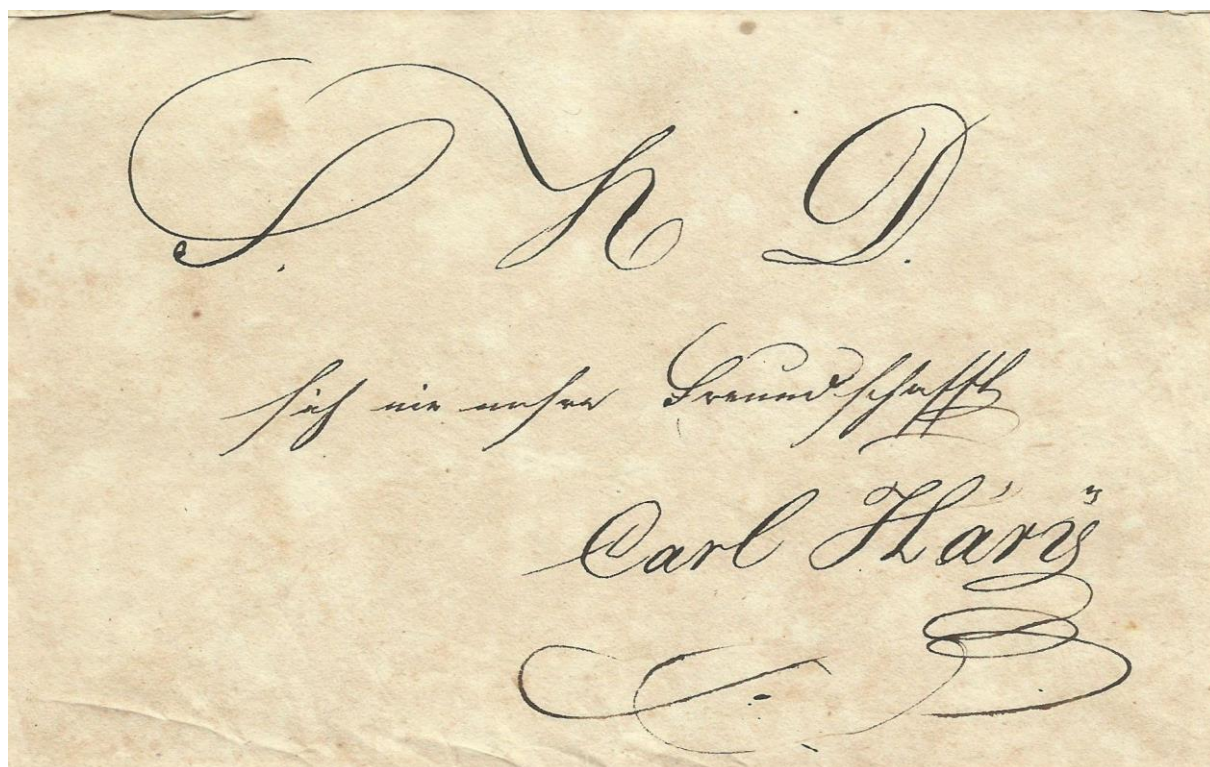 S. D.
sich nie wahre Freundschafft
Carl Hárÿ